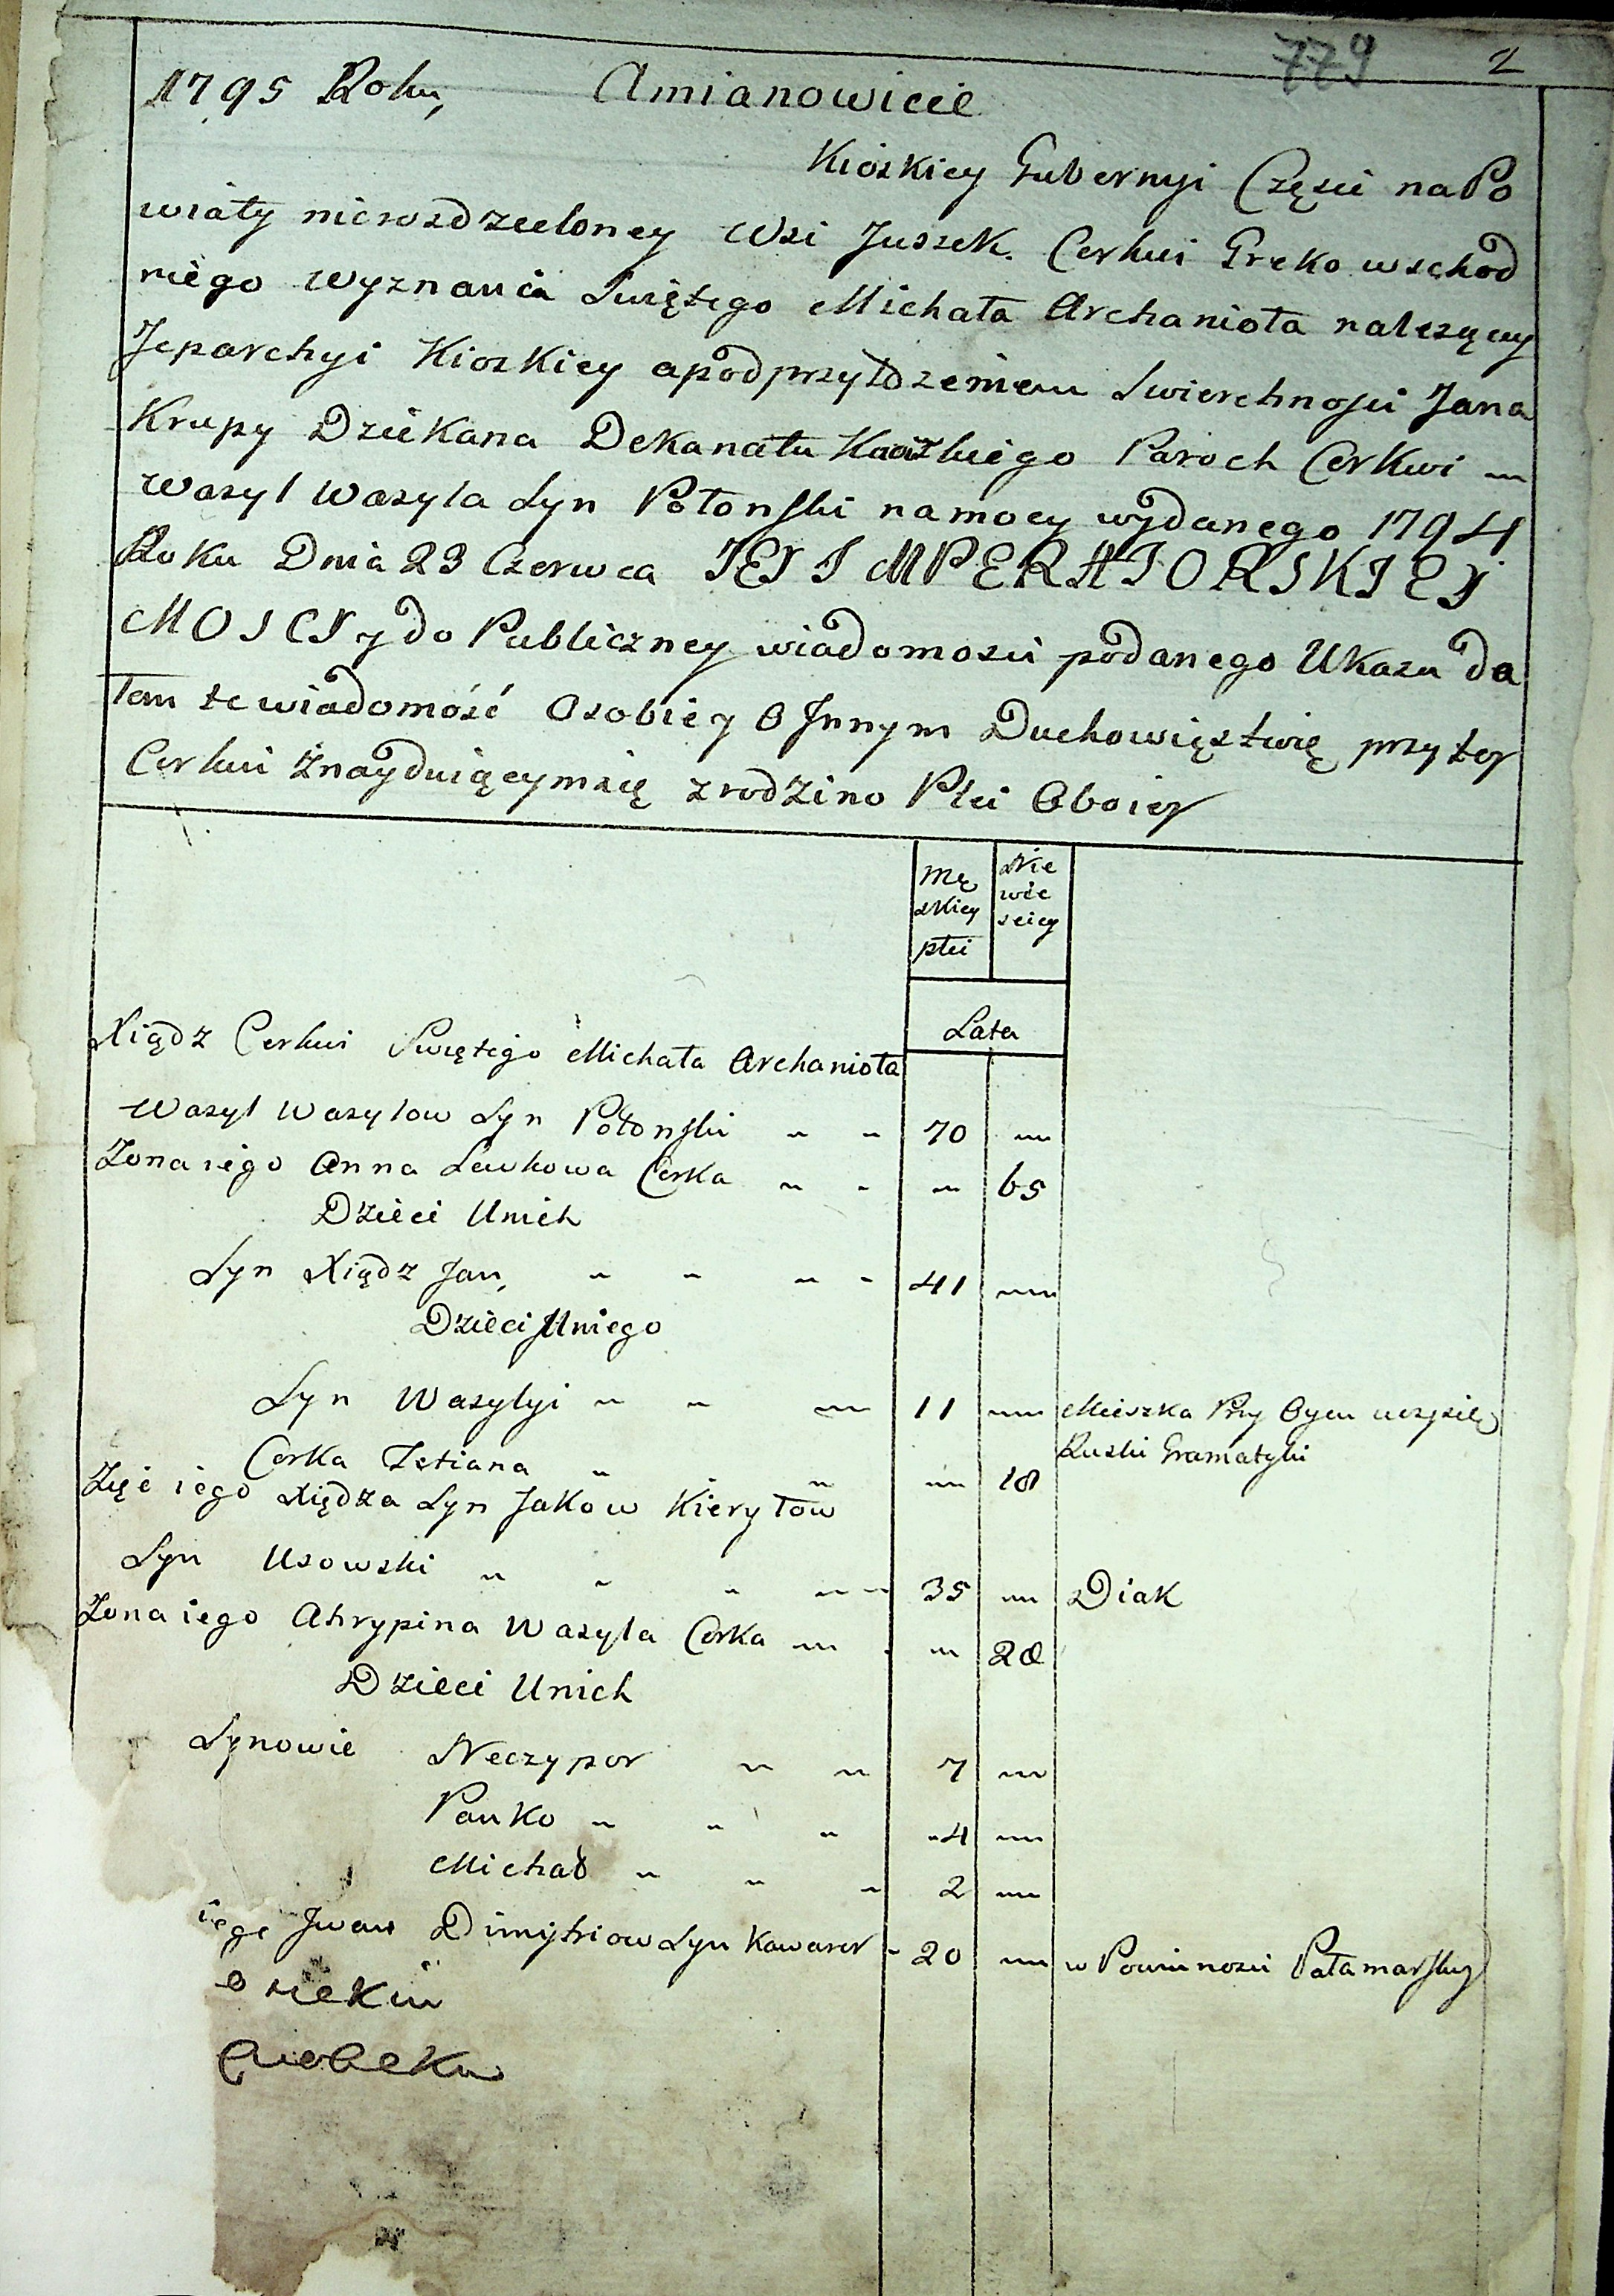 779 2
1795 Roku, Amianowicie
Kiozkiey Gubernyi Częsci na Po
wiaty nierozdzieloney Wsi Juszek. Cerkwi Greko wschod
niego Wyznania Swiętego Michała Archanioła należący
Jeparchyi Kiozkiey a pod przyłdzeniem Swierchnosci Jana
Krupy Dziekana Dekanatu Paroch Cerkwi
Wasyl Wasyla Syn Połonski na mocy wydanego 1794
Roku Dnia 23 Czerwca IEY IMPERATORSKIEY
MOSCI y do Publiczney wiadomosci podanego Ukazu da
łem te wiadomość O sobie y O Innym Duchowięstwię przy tey
Cerkwi Znayduiącym się z rodzino Płci Oboiey
Mę Nie
skiey wie
płci sciey
Lata
Xiądz Cerkwi Swiętego Michała Archanioła
Wasyl Wasylow Syn Połonski 70
Zona iego Anna Lewkowa Corka 65
Dzieci Unich
Syn Xiądz Jan, 41
Dzieci Uniego
Syn Wasylyi 11 Mieszka Przy Oycu uczysię
Ruski Gramatyki
Corka Tetiana 18
Zięć iego Xiędza Syn Jakow Kieryłow
Syn Usowski 35 Diak
Zona iego Ahrypina Wasyla Corka 28
Dzieci Unich
Synowie Neczypor 7
Pauko 4
Michał 2
iego Iwan Dimytriow Syn 20 w Powinnosci Pałamarskiey